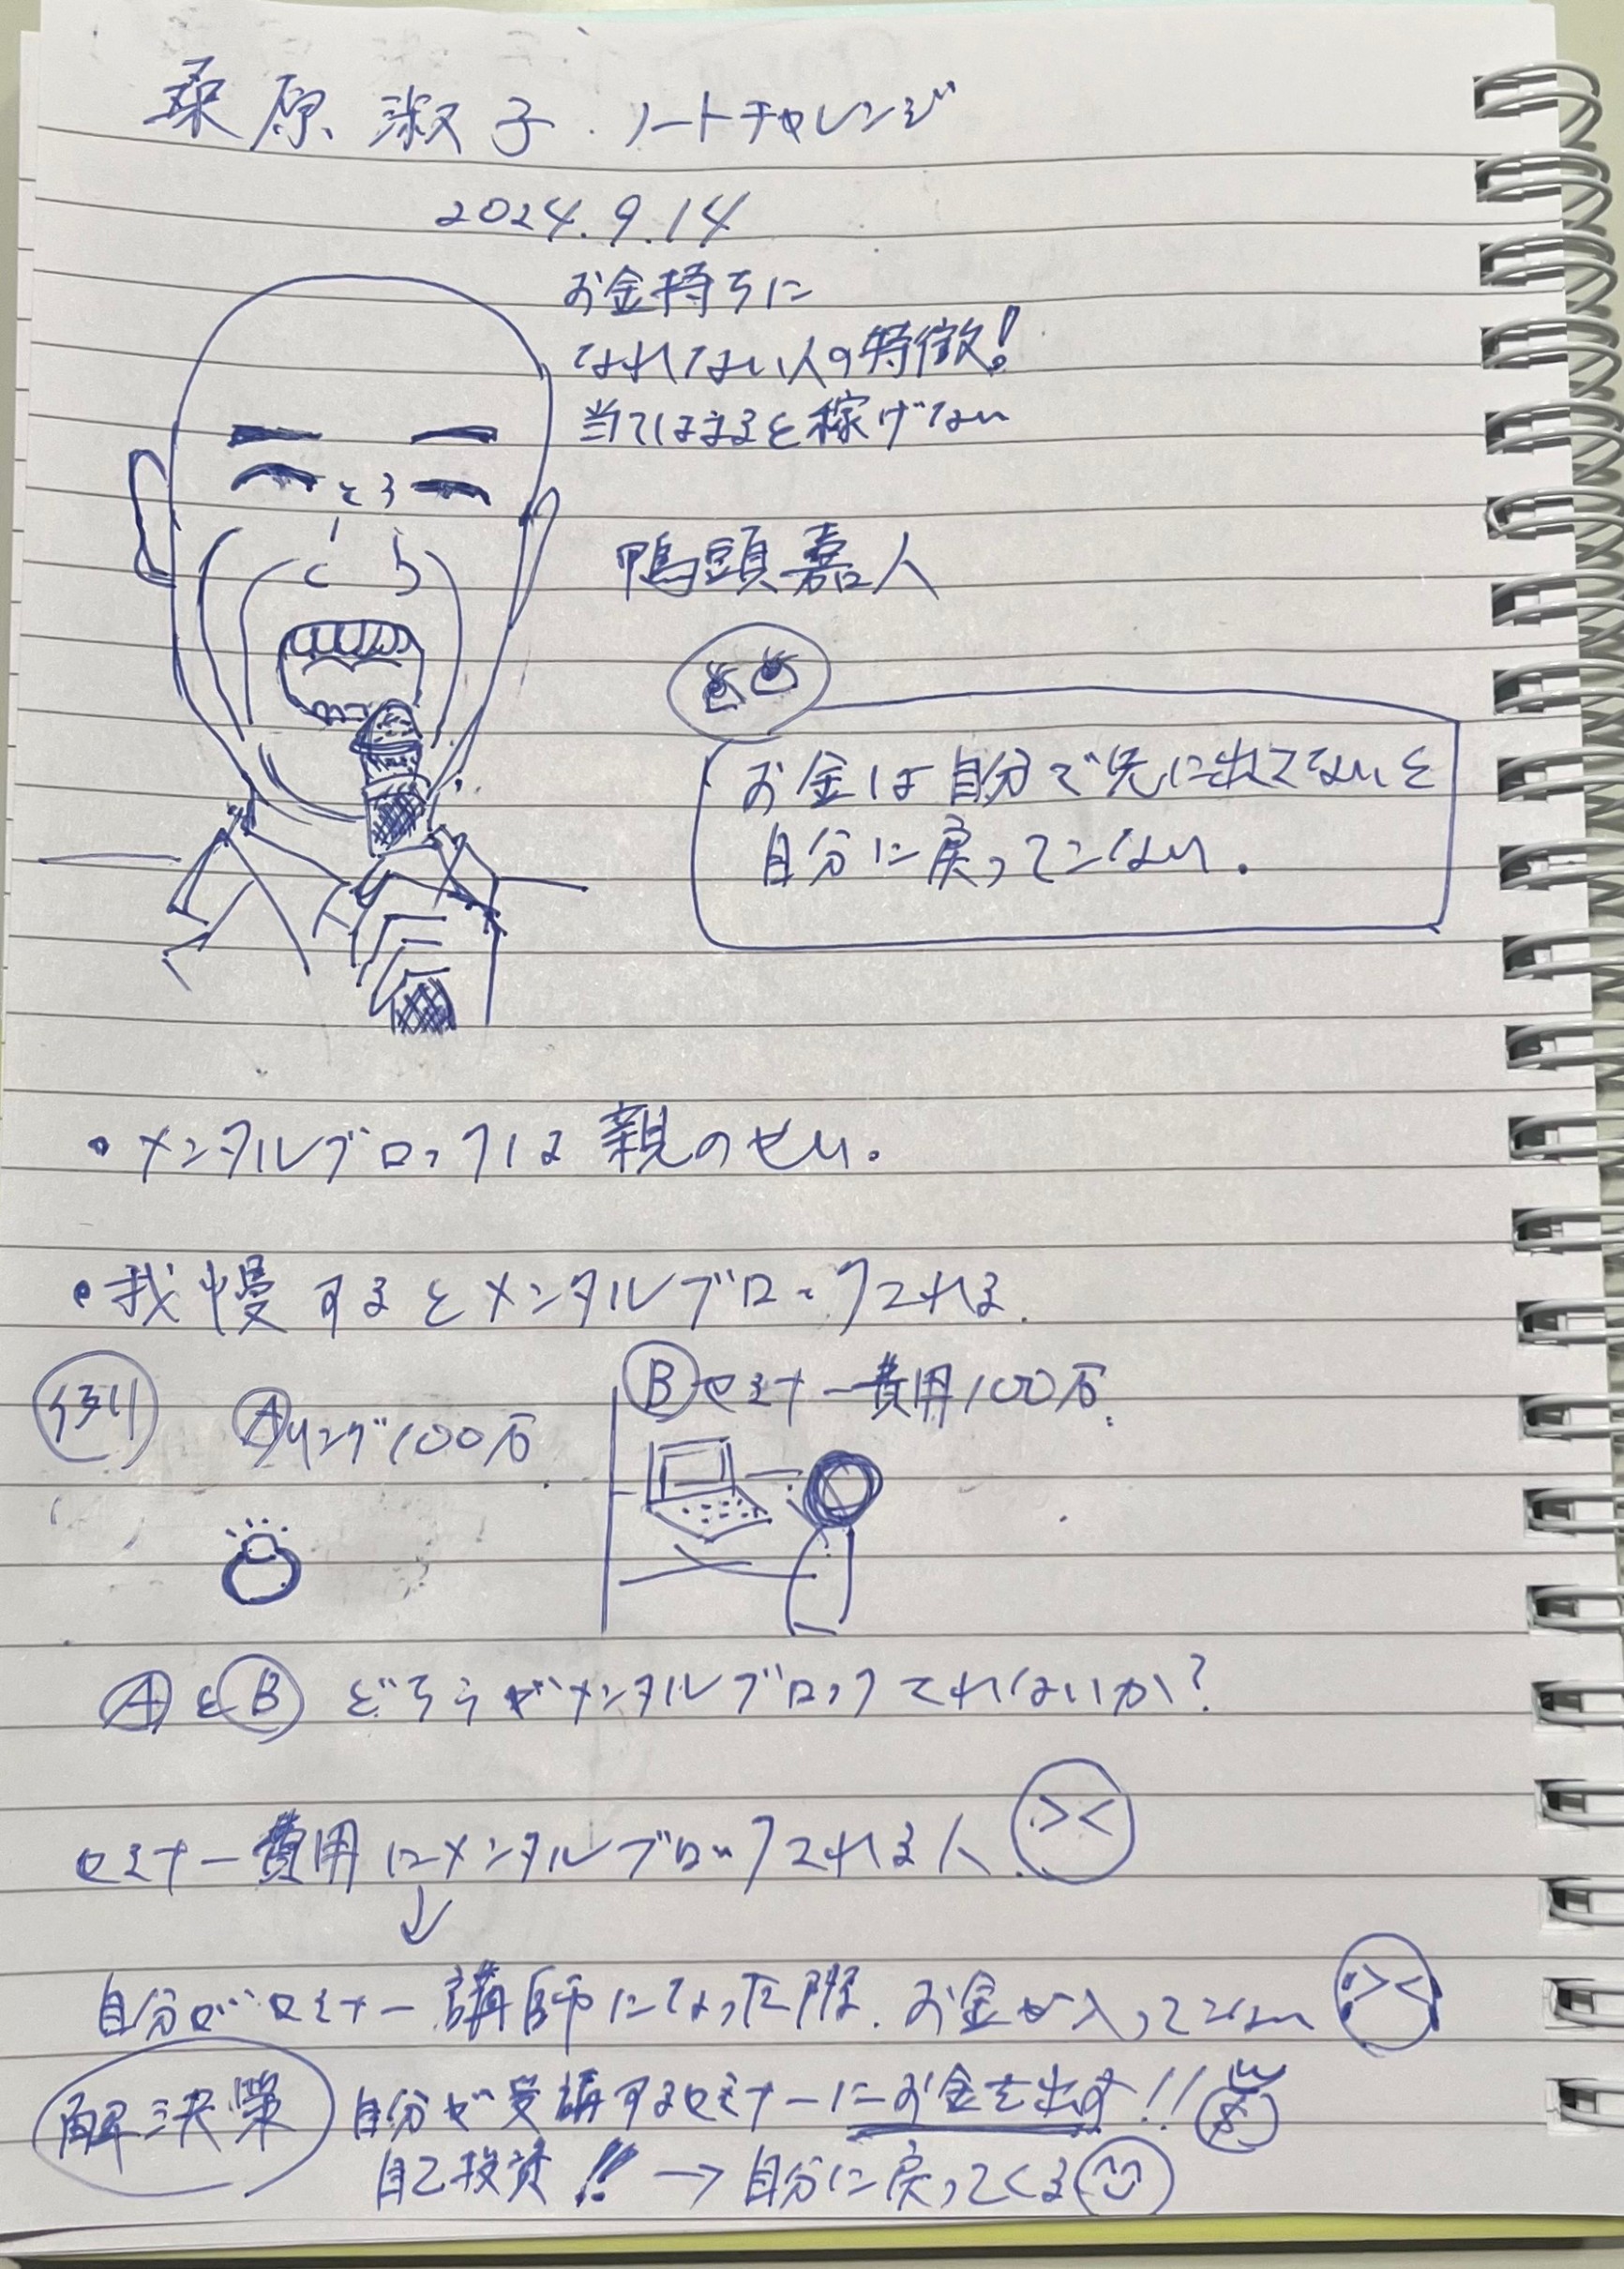 桑原淑子 ノートチャレンジ
2024.9.14
お金持ちに
なれない人の特徴!
当てはまると稼げない
鴨頭嘉人
お金は自分で先に出てないと
自分に戻ってこない.
・メンタルブロックは親のせい.
・我慢するとメンタルブロックされる.
例 Ⓐリング100万.
Ⓑセミナー費用100万.
ⒶとⒷ どちらがメンタルブロックされないか?
セミナー費用にメンタルブロックされる人
↓
自分がセミナー講師になった際.お金が入ってこない
解決策 自分が受講するセミナーにお金を出す!!
自己投資!! → 自分に戻ってくる